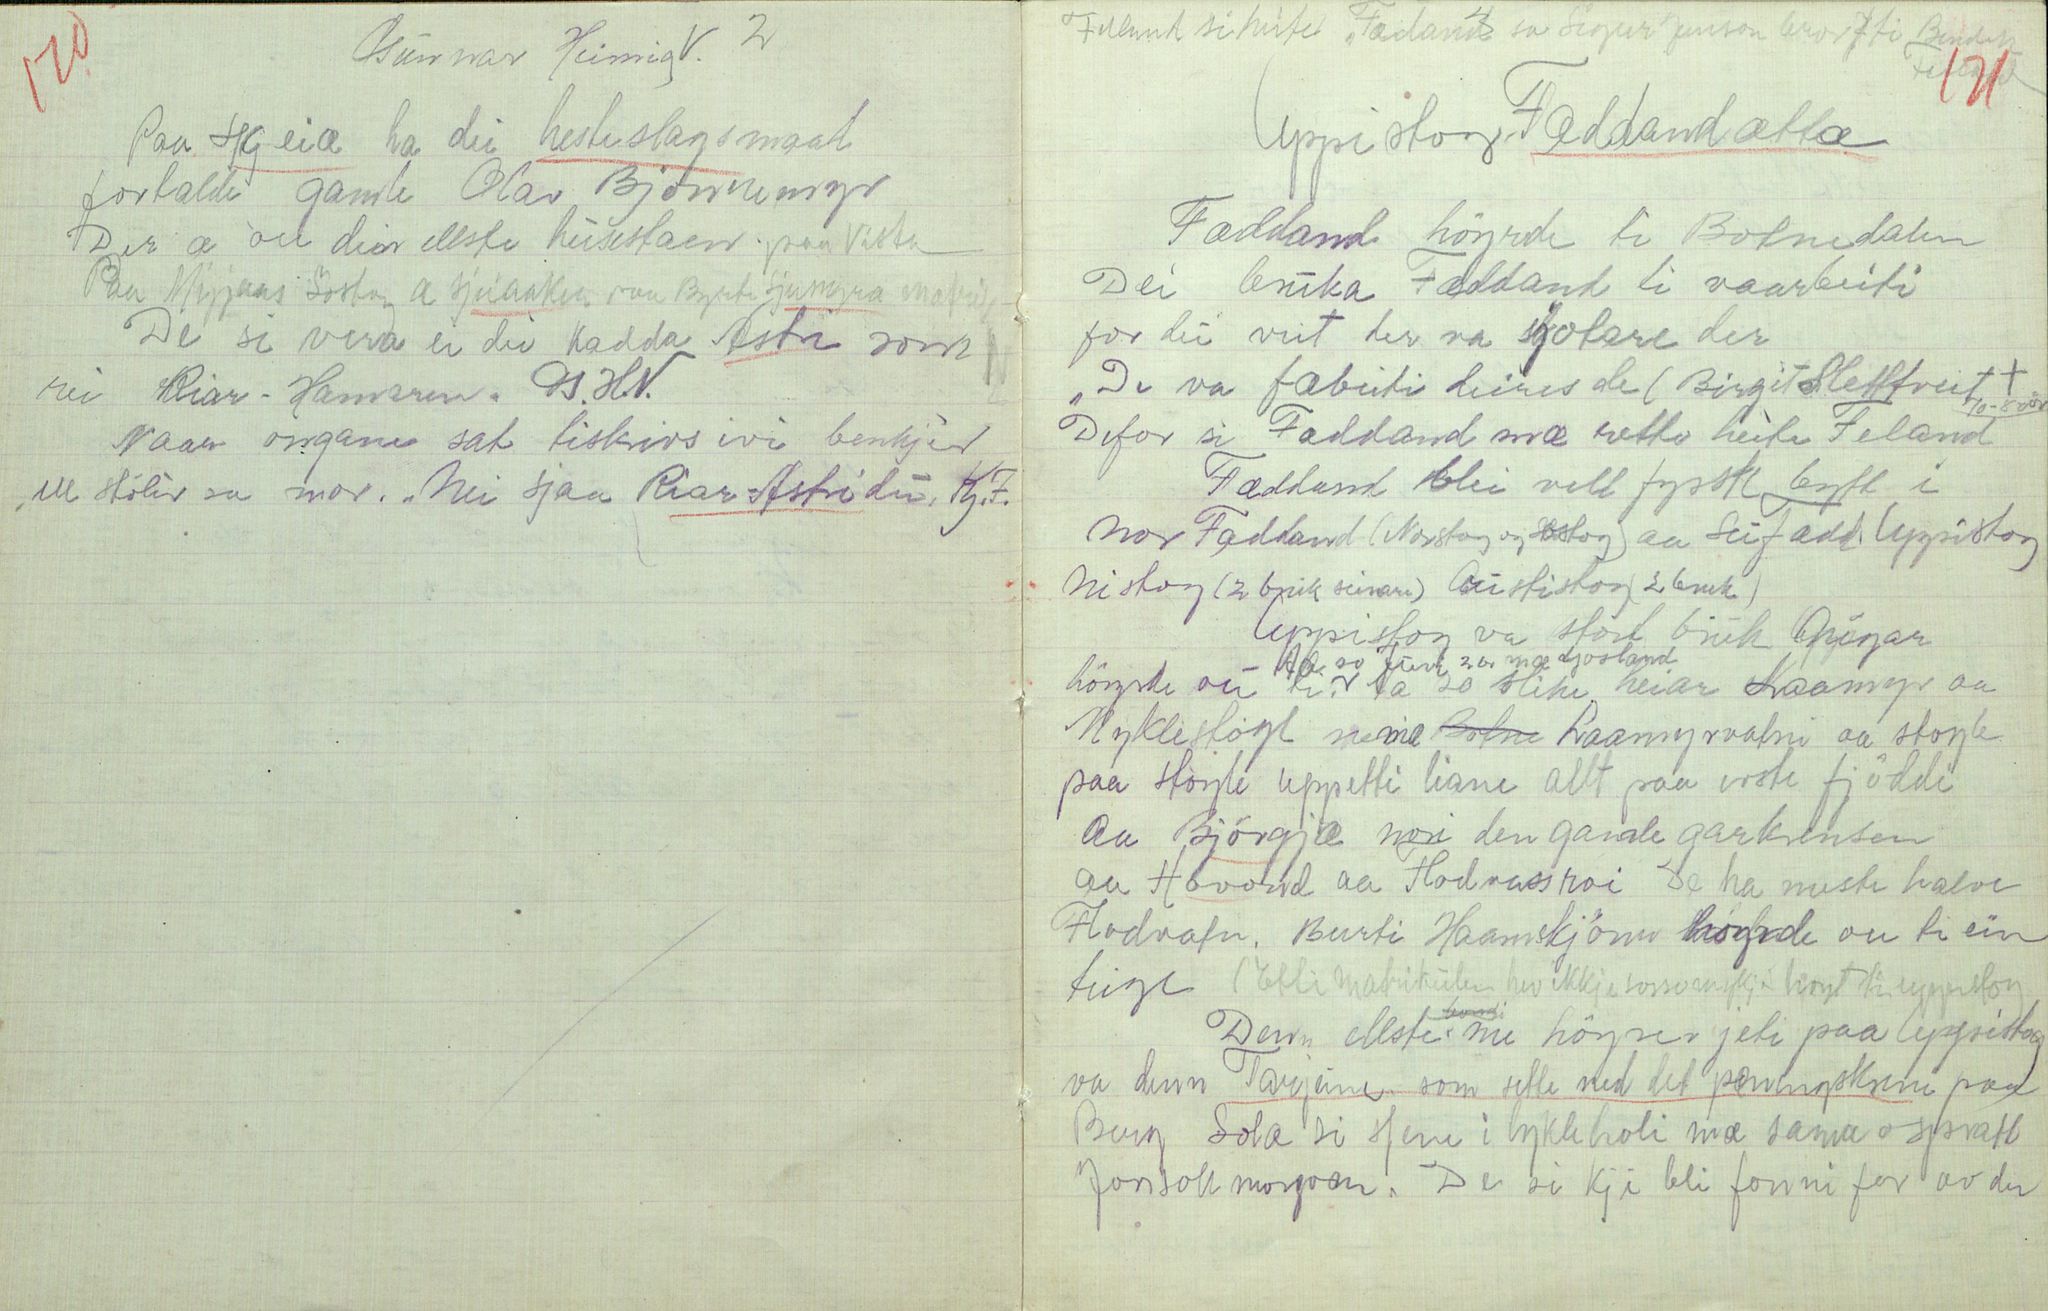 120
Gunnar Heimig V. 2
Paa Skjeiæ ha dei hesteslagsmaal
fortalde gamle Olav Bjønnemyr
Der æ ou dein ellste husestaen paa Vistu
Paa Myjaas Søstog æ sjuaaker paa Byrte sjumyra
De si vera ei dei kadda Astri som
rei Riar-Hamaren. G.H.V.
Naar ongane sat tiskrivs ivi benkjir
ell stolir sa mor. "Nei sjaa Riar-Astri du. Kj.F.
121
Felland si heite "Fædland" sa Sigur Jenson bror ti
Uppistog Fæddandætta
Fæddand høyrde ti Botnedalen
Dei bruka Fæddand ti vaarbeiti
for dei veit der va skotare der
"De va fæbeiti deires de (Birgit Slettveit +
Defor si Fæddand mæ retto heite Feland
Fæddand blei vell fysst bytt i
Nor Fæddand (Norstog og Søstog) aa Sufædd. Uppistog
Nistog (2 bruk seinare) Austistog (2 bruk)
Uppistog va stort bruk
Aa so
høyrde ou ti. Ta so slike heiar Raamyr aa
Myklestøyl neme Raamyrvatni aa støyle
paa støyle uppetti liane allt paa voste fjødde
Aa Bjørgjæ nori den gamle garkrensen
aa Hovond aa Flodvassroi De ha meste halve
Flodvatn. Burti Haamskjønn høyrde ou ti ein
teige (Etti Matrikulen hev ikkje so mykji høyrt ti uppistog
Denn ellste me høyrer jeti paa Uppistog
va denn Tarjeine som sette ned det pænningskrine paa
Berg Sola si sjene i lykleholi mæ sama o sprætt
Jonsokmorgoen. De si kji bli fonni før av der